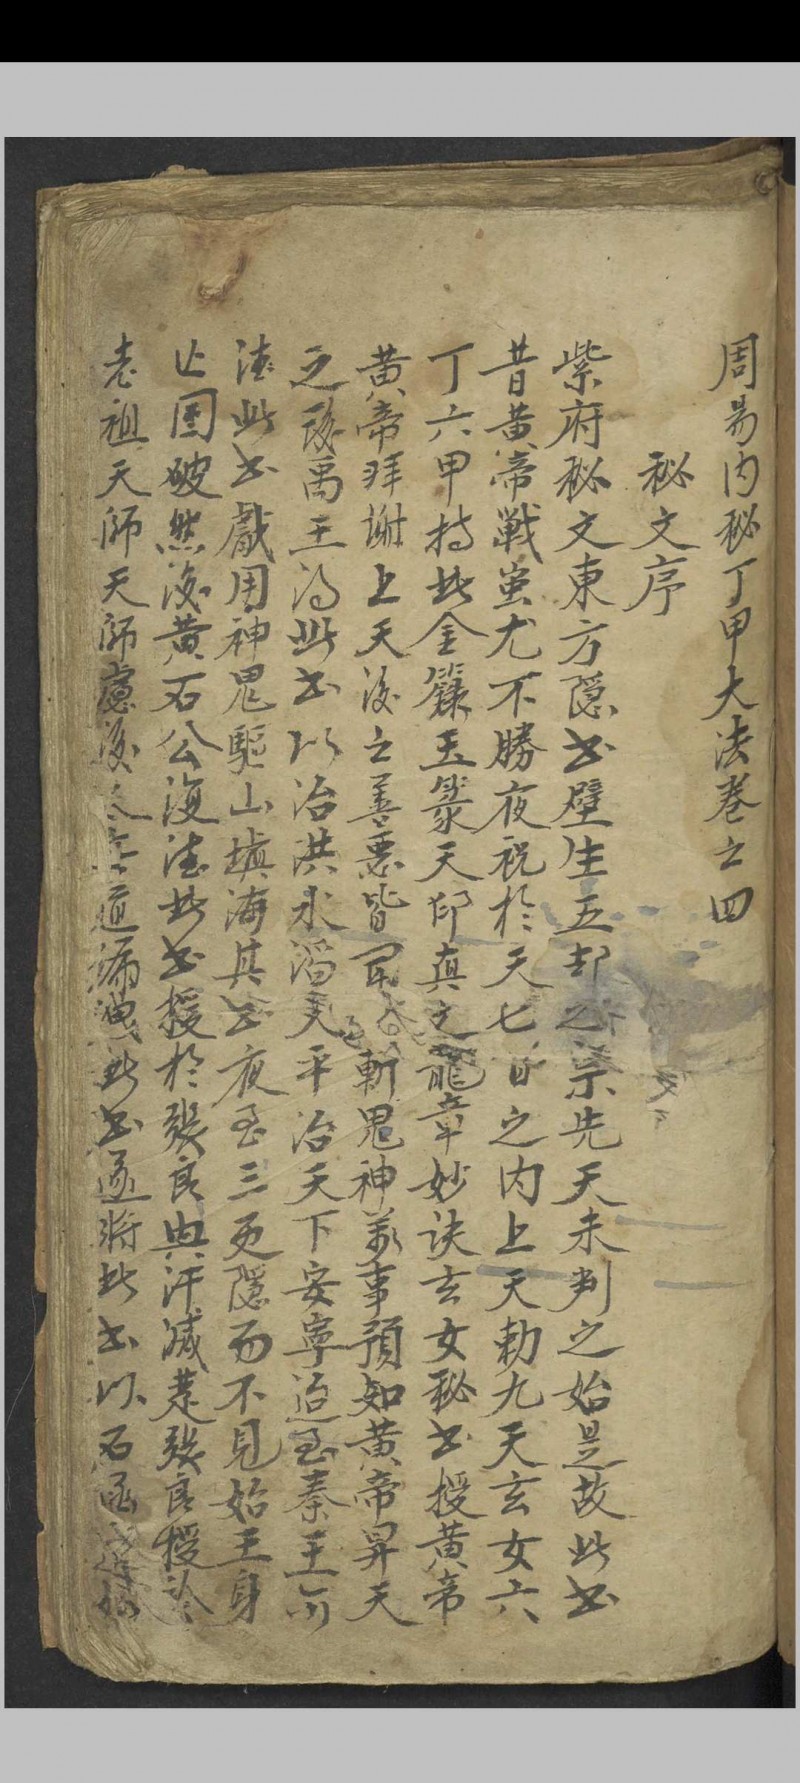 周易内秘丁甲大法卷之四
秘文序
紫府秘文東方隱书壁生五却之宗先天未判之始是故此书
昔黄帝戰蚩尤不勝夜祝於天七日之内上天勅九天玄女六
丁六甲持此金籙玉篆天印真文龍章妙诀玄女秘书授黄帝
黄帝拜谢上天後之善悪皆斬鬼神萬事預知黄帝昇天
之後禹王得此书以治洪水滔天平治天下安寧迨至秦王
此书戱用神鬼驅山填海其书夜至三更隱而不見始王身
亾国破然後黄石公復此书授於張良興汗减楚張良授於
老祖天师天师慮後道漏洩此书遂将此书以石函